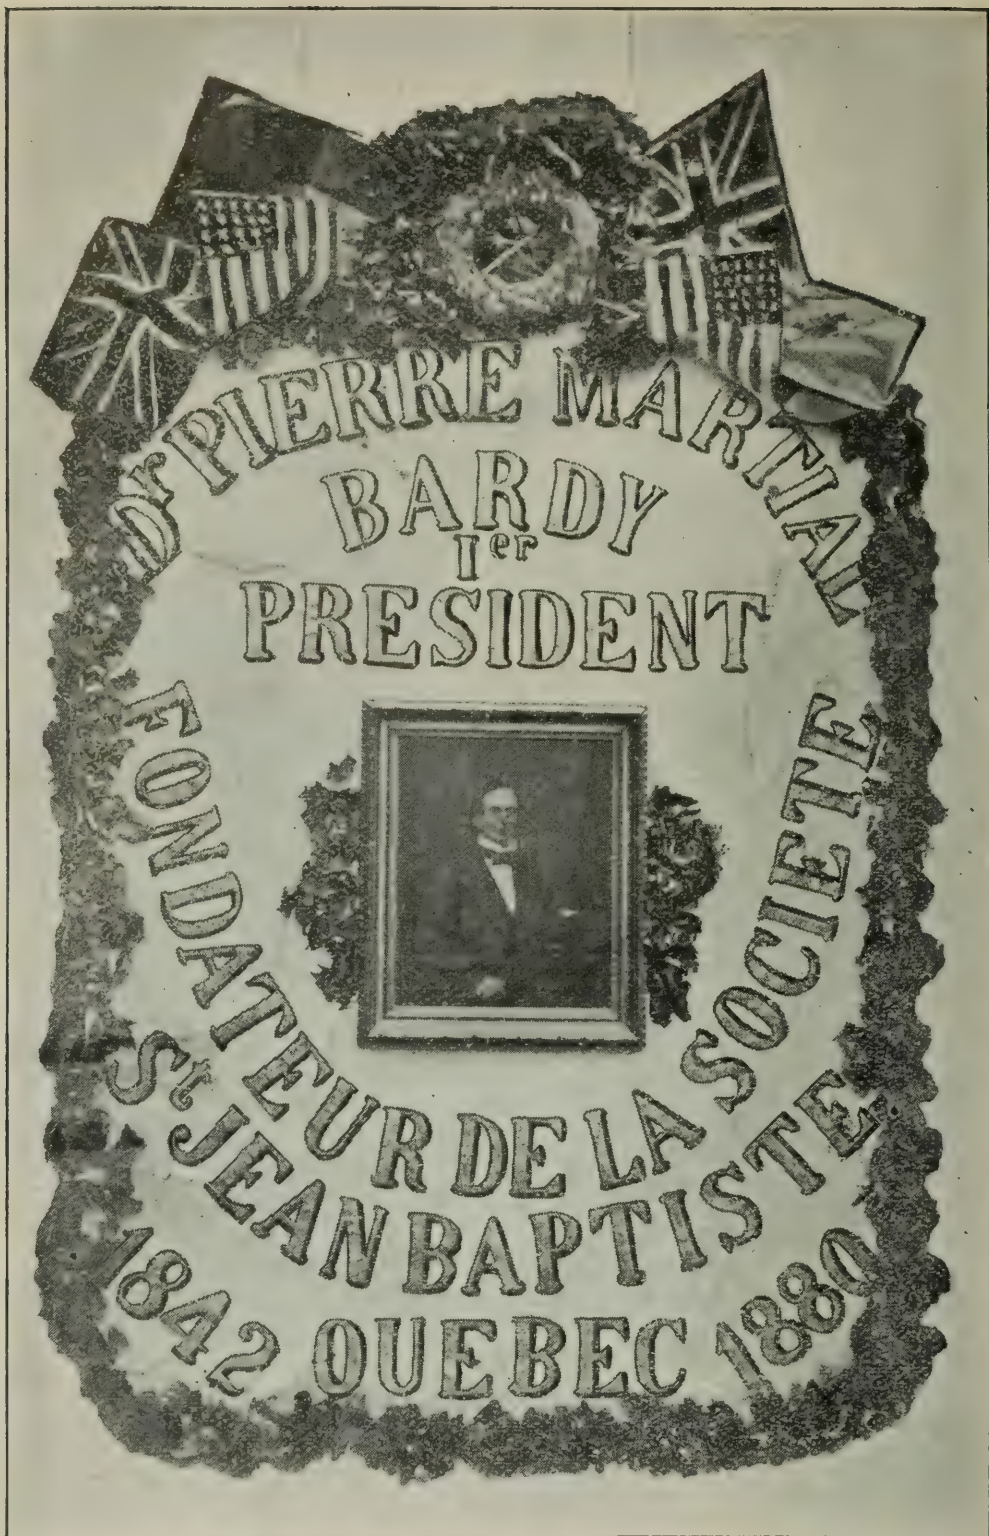 Dr PIERRE MARTIAL
BARDY
Ier
PRESIDENT
FONDATEUR DE LA SOCIETE
St JEAN BAPTISTE
1842 QUEBEC 1880